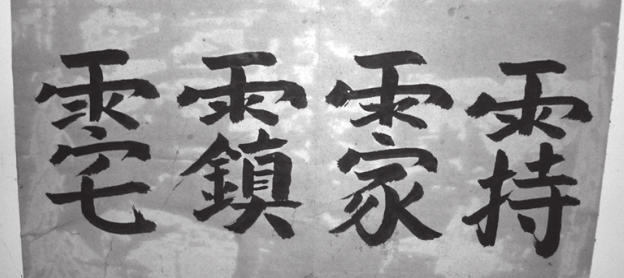 ⿱雨持⿱雨家⿱雨鎮⿱雨宅